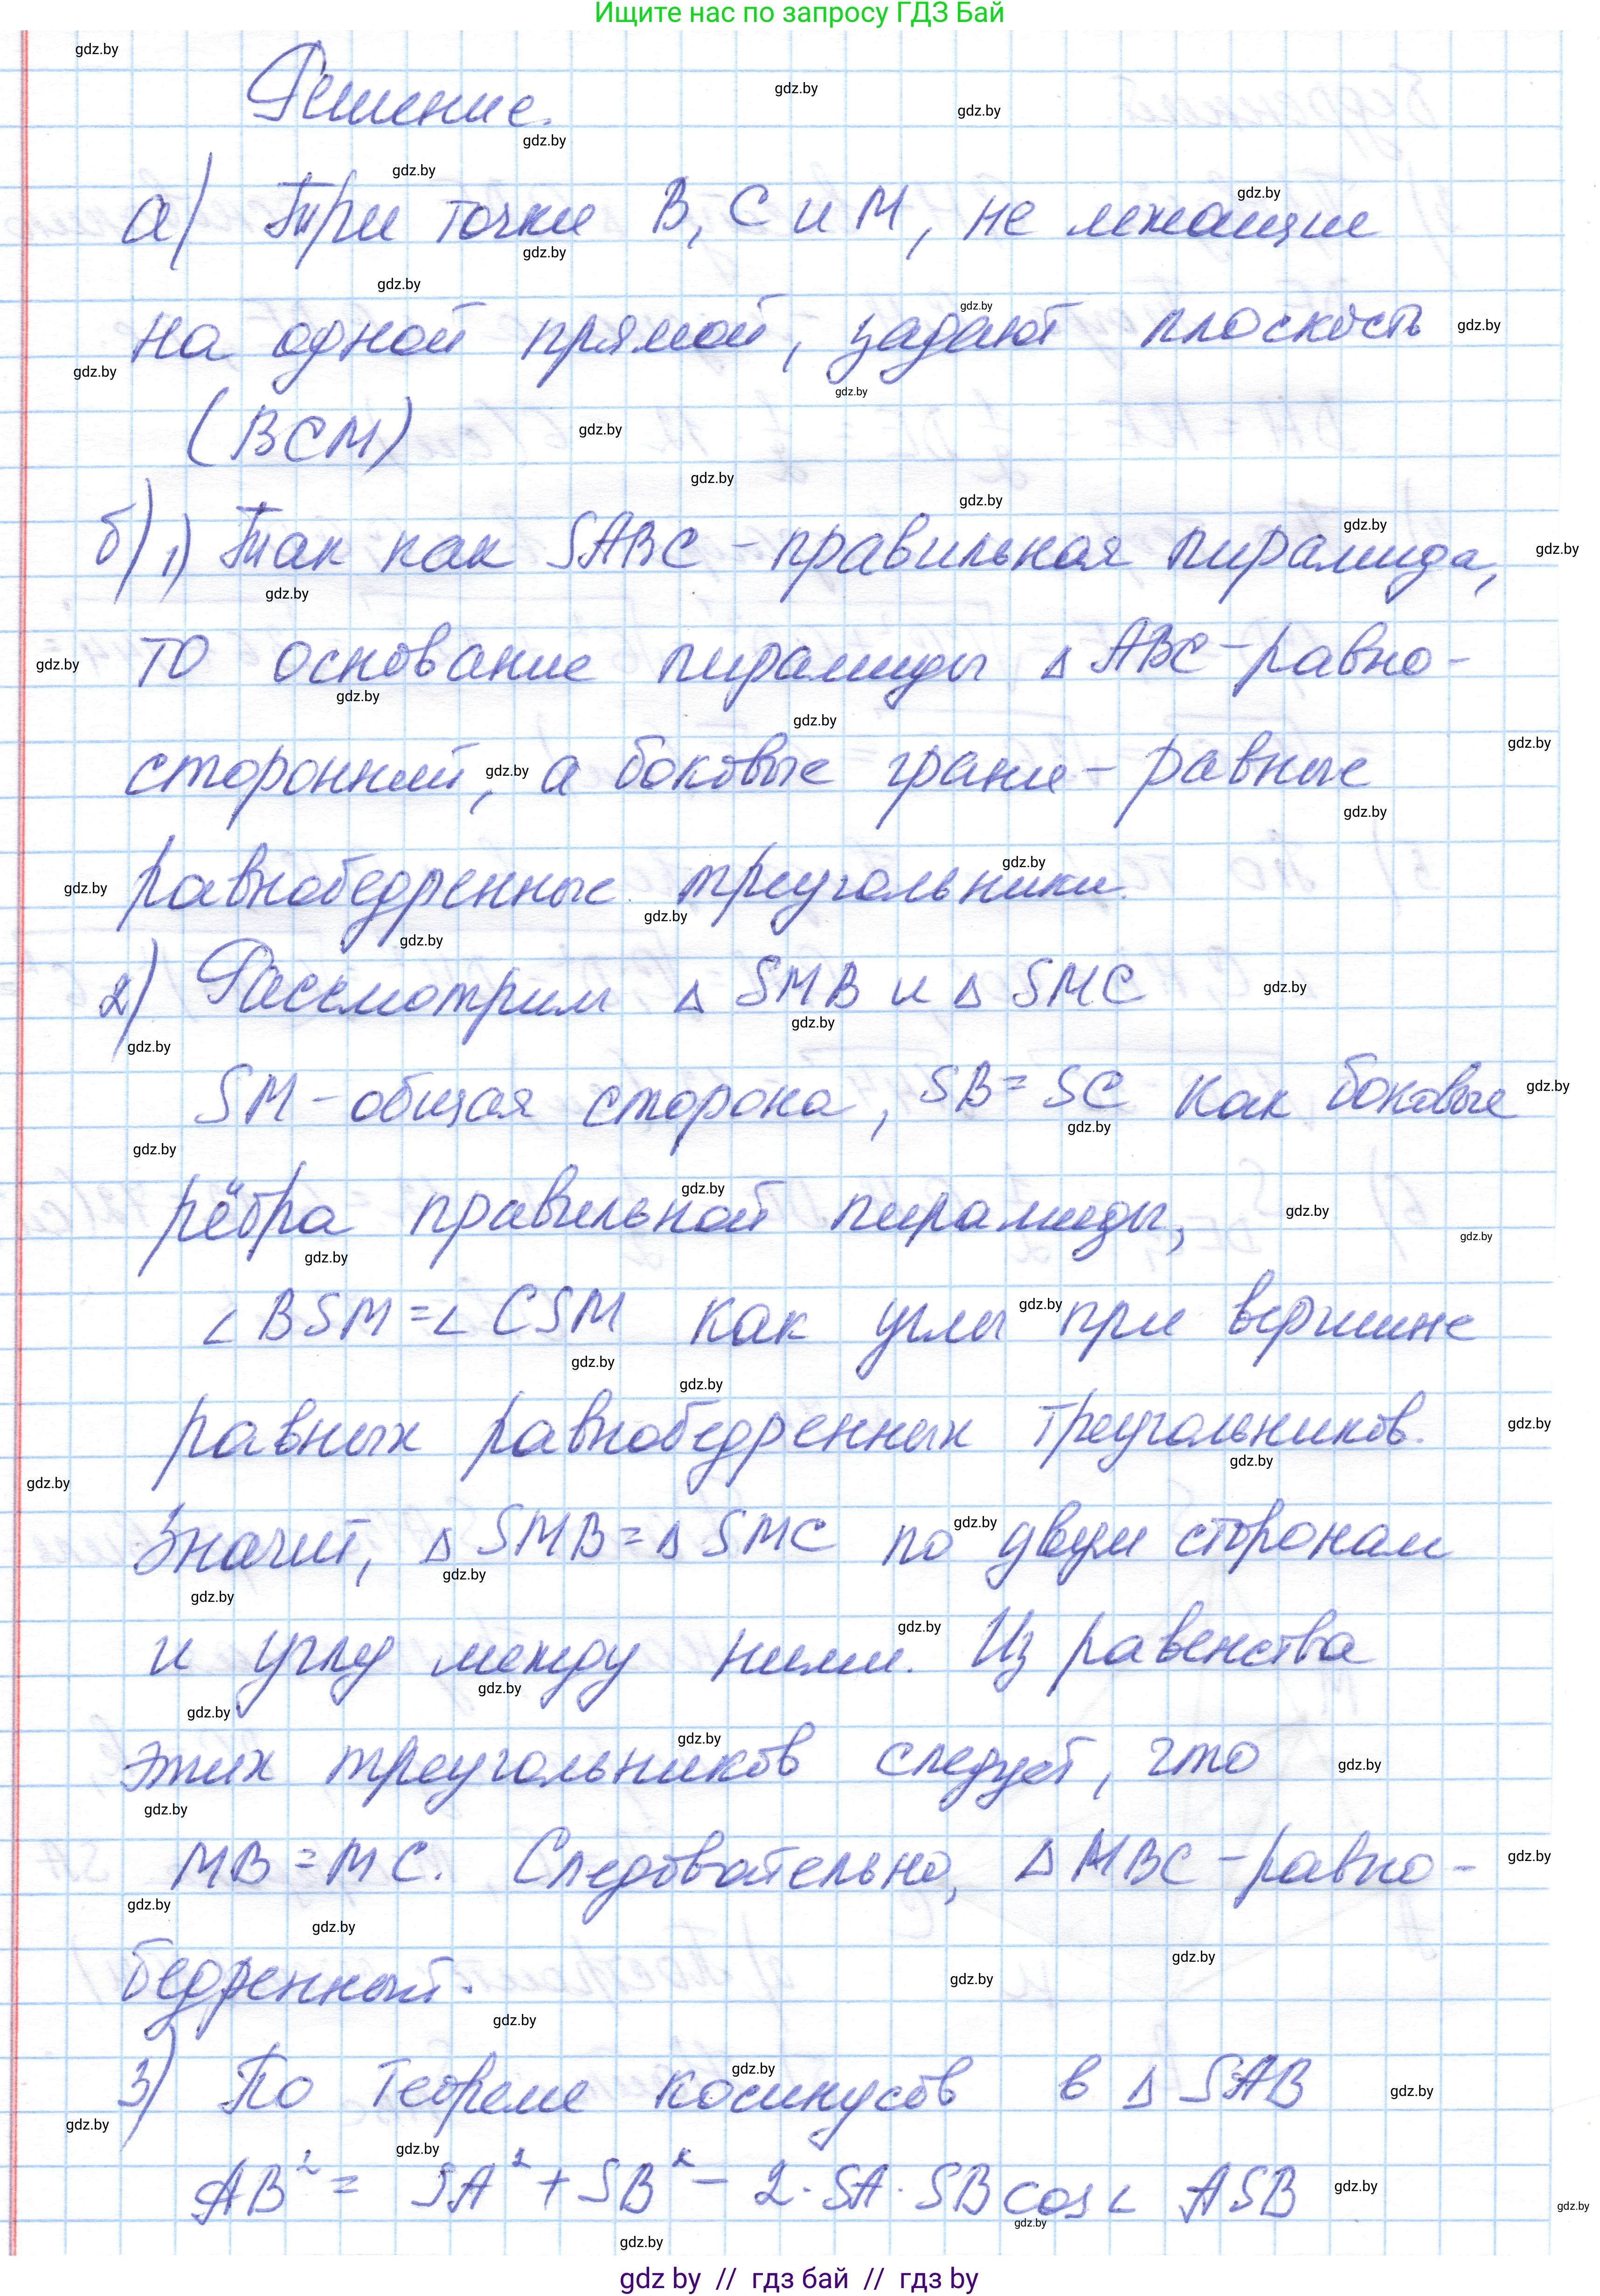 Ищите нас по запросу ГДЗ Бай
Решение.
а) Три точки B, C и M, не лежащие
на одной прямой, задают плоскость
(BCM)
б) 1) Так как SABC - правильная пирамида,
то основание пирамиды △ ABC - равно-
сторонний, а боковые грани - равные
равнобедренные треугольники.
2) Рассмотрим △ SMB и △ SMC
SM - общая сторона, SB = SC как боковые
рёбра правильной пирамиды,
∠ BSM = ∠ CSM как углы при вершине
равных равнобедренных треугольников.
Значит, △ SMB = △ SMC по двум сторонам
и углу между ними. Из равенства
этих треугольников следует, что
MB = MC. Следовательно, △ MBC - равно-
бедренный.
3) По теореме косинусов в △ SAB
AB² = SA² + SB² - 2 · SA · SB cos ∠ ASB
gdz by // гдз бай // гдз by